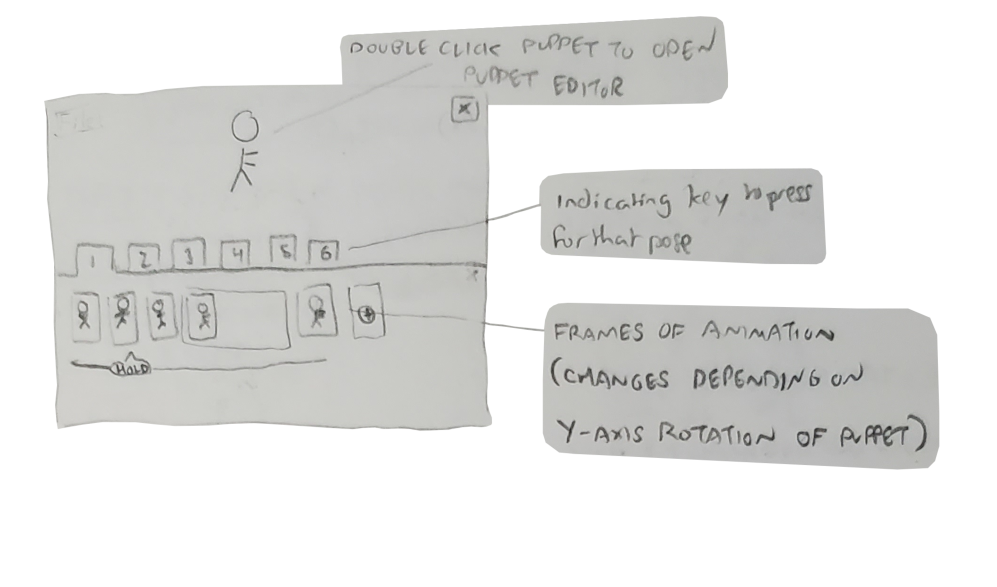 DOUBLE CLICK PUPPET TO OPEN
PUPPET EDITOR
X
Indicating key to press
for that pose
1 2 3 4 5 6
FRAMES OF ANIMATION
(CHANGES DEPENDING ON
Y-AXIS ROTATION OF PUPPET)
HOLD